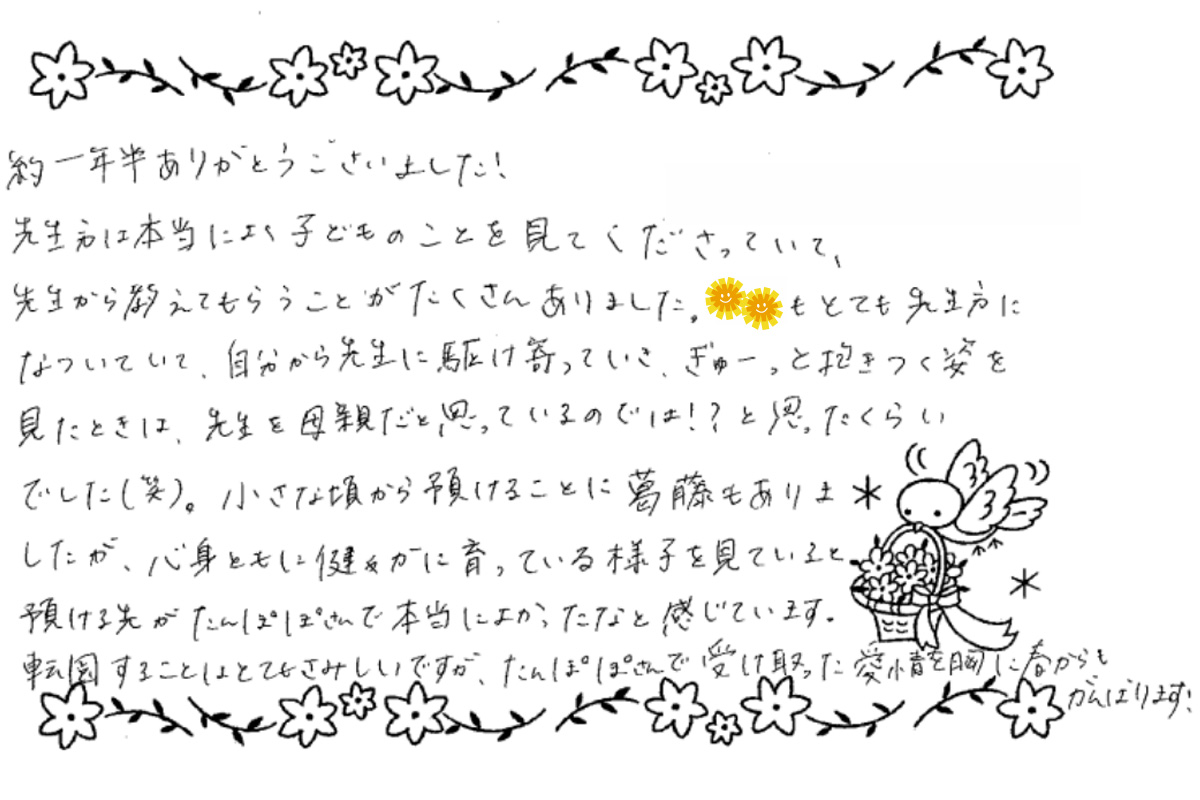 約一年半ありがとうございました!
先生方は本当によく子どものことを見てくださっていて、
先生から教えてもらうことがたくさんありました。もとても先生方に
なついていて、自分から先生に駆け寄っていき、ぎゅーっと抱きつく姿を
見たときは、先生を母親だと思っているのでは!?と思ったくらい
でした(笑)。小さな頃から預けることに葛藤もありま
したが、心身ともに健やかに育っている様子を見ていると
預ける先がたんぽぽさんで本当によかったなと感じています。
転園することはとてもさみしいですが、たんぽぽさんで受け取った愛情を胸に春からも
がんばります!